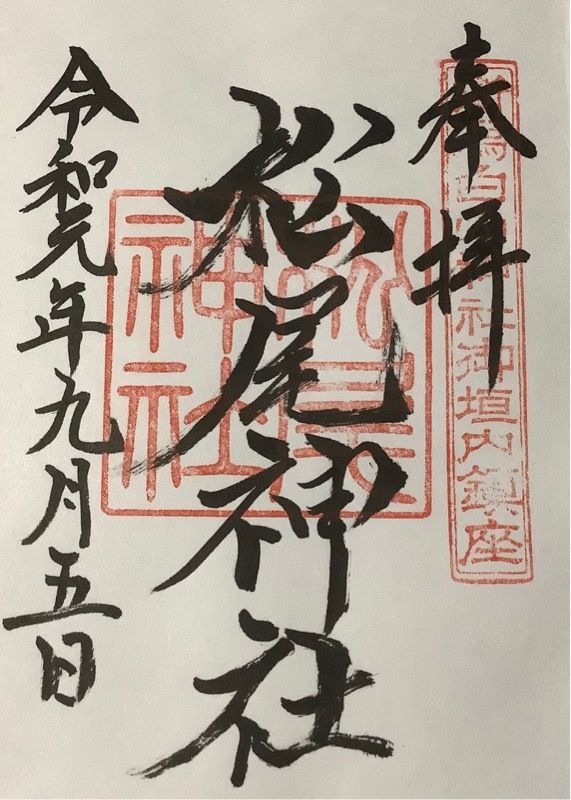 奉拝
白山神社御垣内鎮座
松尾神社
松尾神社
令和元年九月五日